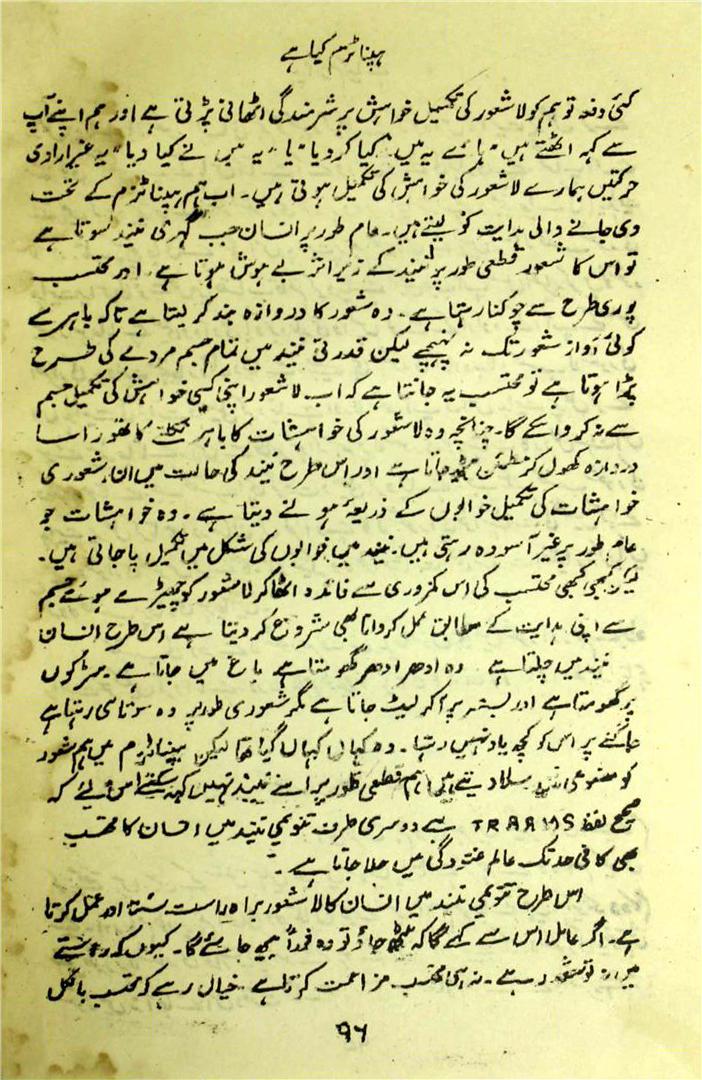 ہپناٹزم کیا ہے
کئی دفعہ تو ہم کو لا شعور کی تکمیل خواہش پر شرمندگی اٹھانی پڑتی ہے اور ہم اپنے آپ
سے کہہ اٹھتے ہیں "ہائے یہ میں کیا کر دیا" یا "یہ میں نے کیا کیا دیا" یہ غیر ارادی
حرکتیں ہمارے لا شعور کی خواہش کی تکمیل ہوتی ہیں۔ اب ہم ہپناٹزم کے تحت
دی جانے والی ہدایت کو لیتے ہیں۔ عام طور پر انسان جب گہری نیند سوتا ہے
تو اس کا شعور قطعی طور پر نیند کے زیر اثر بے ہوش ہوتا ہے۔ اور محتسب
پوری طرح سے چوکنا رہتا ہے۔ وہ شعور کا دروازہ بند کر لیتا ہے تاکہ باہر سے
کوئی آواز شعور تک نہ پہنچے لیکن قدرتی نیند میں تمام جسم مردے کی طرح
پڑا ہوتا ہے تو محتسب یہ جانتا ہے کہ اب لا شعور اپنی کسی خواہش کی تکمیل جسم
سے نہ کروا سکے گا۔ چنانچہ وہ لا شعور کی خواہشات کا باہر نکلنے کا تھوڑا سا
دروازہ کھول کر مطمئن ہو جاتا ہے اور اس طرح نیند کی حالت میں ان شعوری
خواہشات کی تکمیل خوابوں کے ذریعہ ہونے دیتا ہے۔ وہ خواہشات جو
عام طور پر غیر آسودہ رہتی ہیں۔ نیند میں خوابوں کی شکل میں تکمیل پا جاتی ہیں۔
لیکن کبھی کبھی محتسب کی اس کمزوری سے فائدہ اٹھا کر لا شعور کو چھیڑے ہوئے جسم
سے اپنی ہدایت کے مطابق عمل کروانا بھی شروع کر دیتا ہے اس طرح انسان
نیند میں چلتا ہے۔ وہ ادھر ادھر گھومتا ہے باغ میں جاتا ہے۔ سڑکوں
پر گھومتا ہے اور بستر پر آ کر لیٹ جاتا ہے مگر شعوری طور پر وہ سوتا ہی رہتا ہے
جاگنے پر اس کو کچھ یاد نہیں رہتا۔ وہ کہاں کہاں گیا تھا لیکن ہپناٹزم میں ہم شعور
کو مصنوعی نیند سلا دیتے ہیں ہم قطعی طور پر اسے نیند نہیں کہہ سکتے اس لئے کہ
صحیح لفظ TRAANS ہے دوسری طرف تنویمی نیند میں انسان کا محتسب
بھی کافی حد تک عالم غنودگی میں چلا جاتا ہے۔
اس طرح تنویمی نیند میں انسان کا لا شعور براہ راست سنتا اور عمل کرتا
ہے۔ اگر عامل اس سے کہے گا کہ بیٹھ جاؤ تو وہ فوراً بیٹھ جائے گا۔ کیوں کہ رستے
میں نہ تو شعور ہے۔ نہ ہی محتسب۔ مزاحمت کرتا ہے۔ خیال رہے کہ محتسب بالکل
۹۶